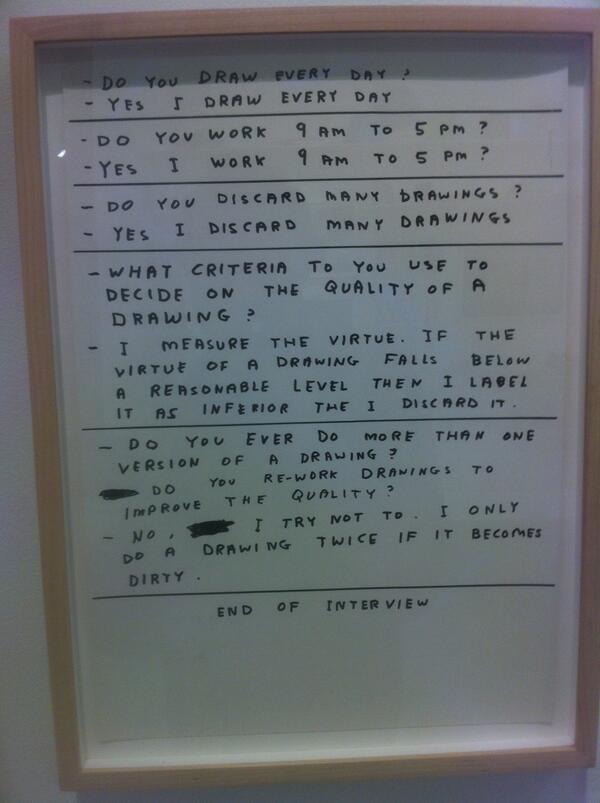 - DO YOU DRAW EVERY DAY ?
- YES I DRAW EVERY DAY
- DO YOU WORK 9 AM TO 5 PM ?
- YES I WORK 9 AM TO 5 PM ?
- DO YOU DISCARD MANY DRAWINGS ?
- YES I DISCARD MANY DRAWINGS
- WHAT CRITERIA TO YOU USE TO
DECIDE ON THE QUALITY OF A
DRAWING ?
- I MEASURE THE VIRTUE. IF THE
VIRTUE OF A DRAWING FALLS BELOW
A REASONABLE LEVEL THEN I LABEL
IT AS INFERIOR THE I DISCARD IT.
- DO YOU EVER DO MORE THAN ONE
VERSION OF A DRAWING ?
DO YOU RE-WORK DRAWINGS TO
IMPROVE THE QUALITY ?
- NO, I TRY NOT TO. I ONLY
DO A DRAWING TWICE IF IT BECOMES
DIRTY.
END OF INTERVIEW